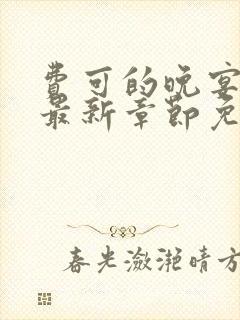 费可的晚宴
最新章节免
春光潋滟晴方